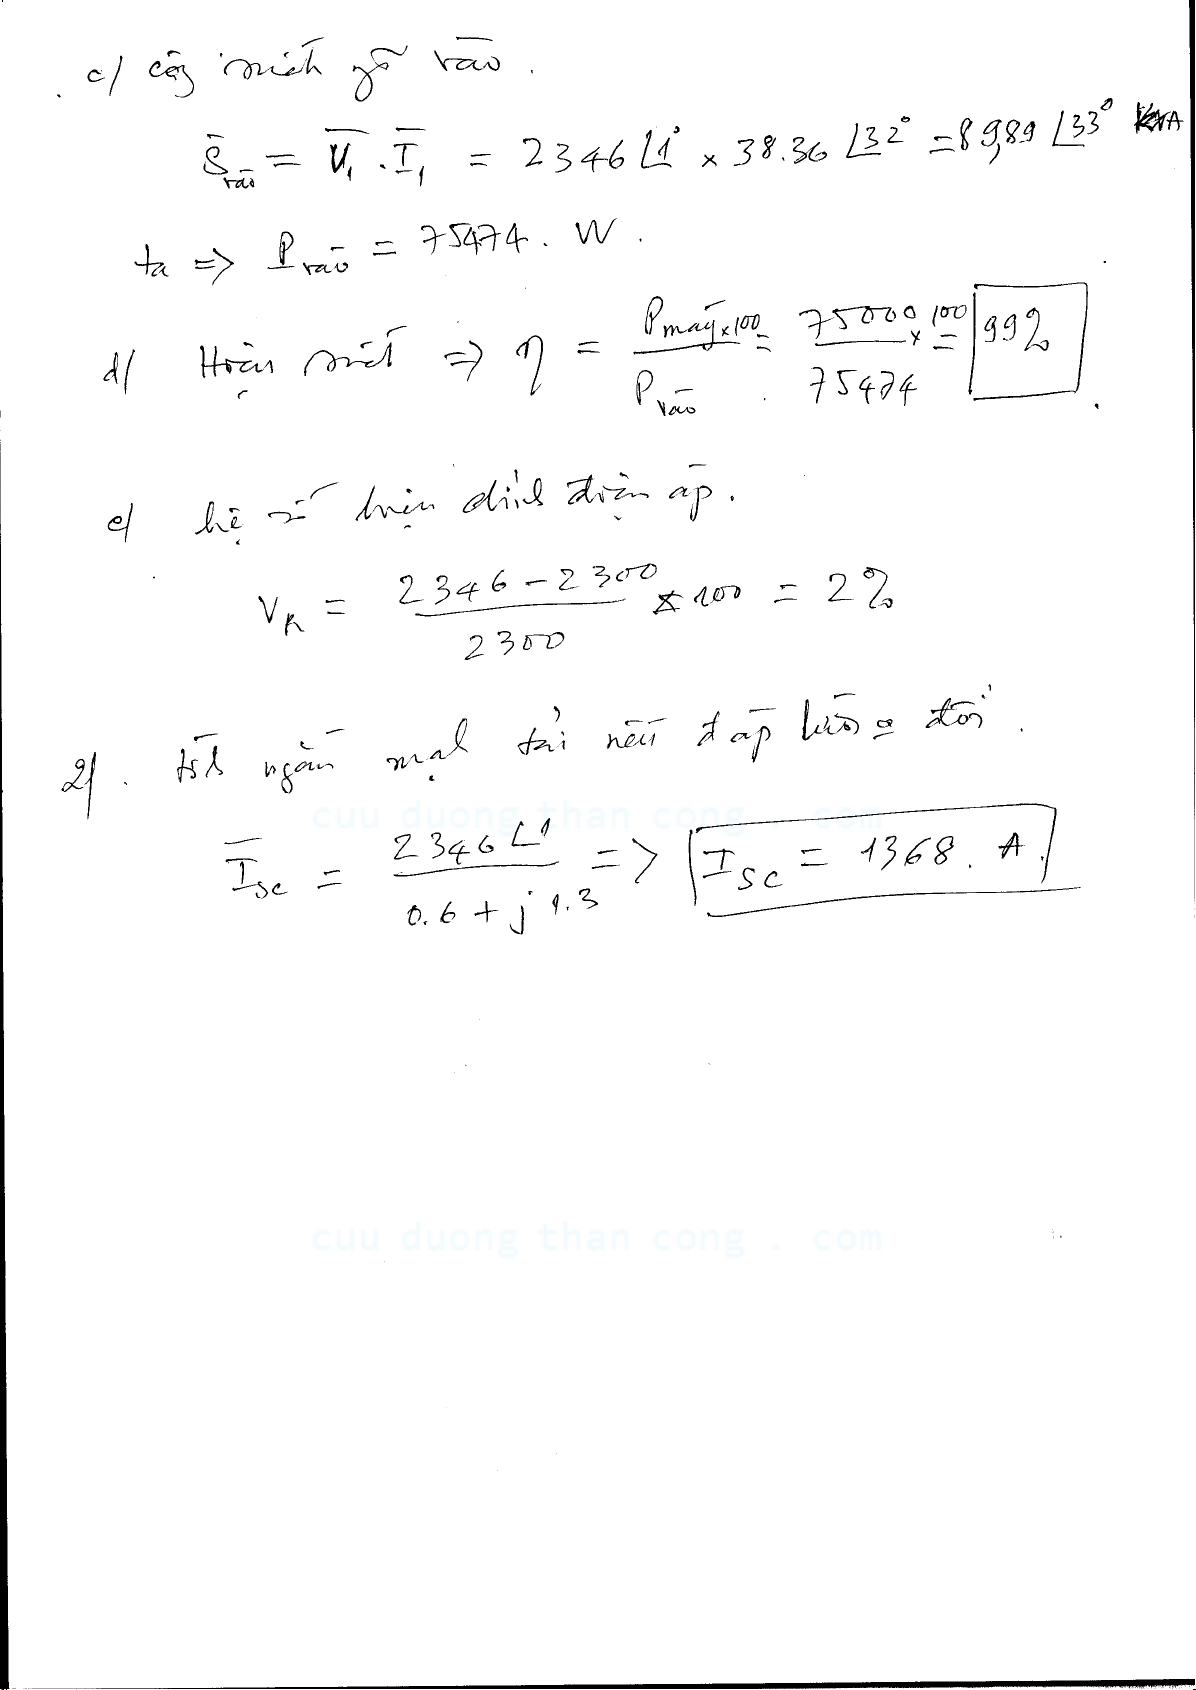 c/ công suất ngõ vào.
S̄vào = V̄₁ . Ī₁ = 2346 ∠1° × 38.36 ∠32° = 89,89 ∠33° KVA
ta => Pvào = 75474. W.
d/ Hiệu suất => η = Pmáy×100 / Pvào = 75000 × 100 / 75474 = 99%
e/ hệ số biến đổi điện áp.
VR = 2346 - 2300 / 2300 × 100 = 2%
2/. tính ngắn mạch tải nếu đ áp đổi.
Īsc = 2346 ∠1 / 0.6 + j 1.3 => Isc = 1368. A.
cuu duong than cong . com
cuu duong than cong . com